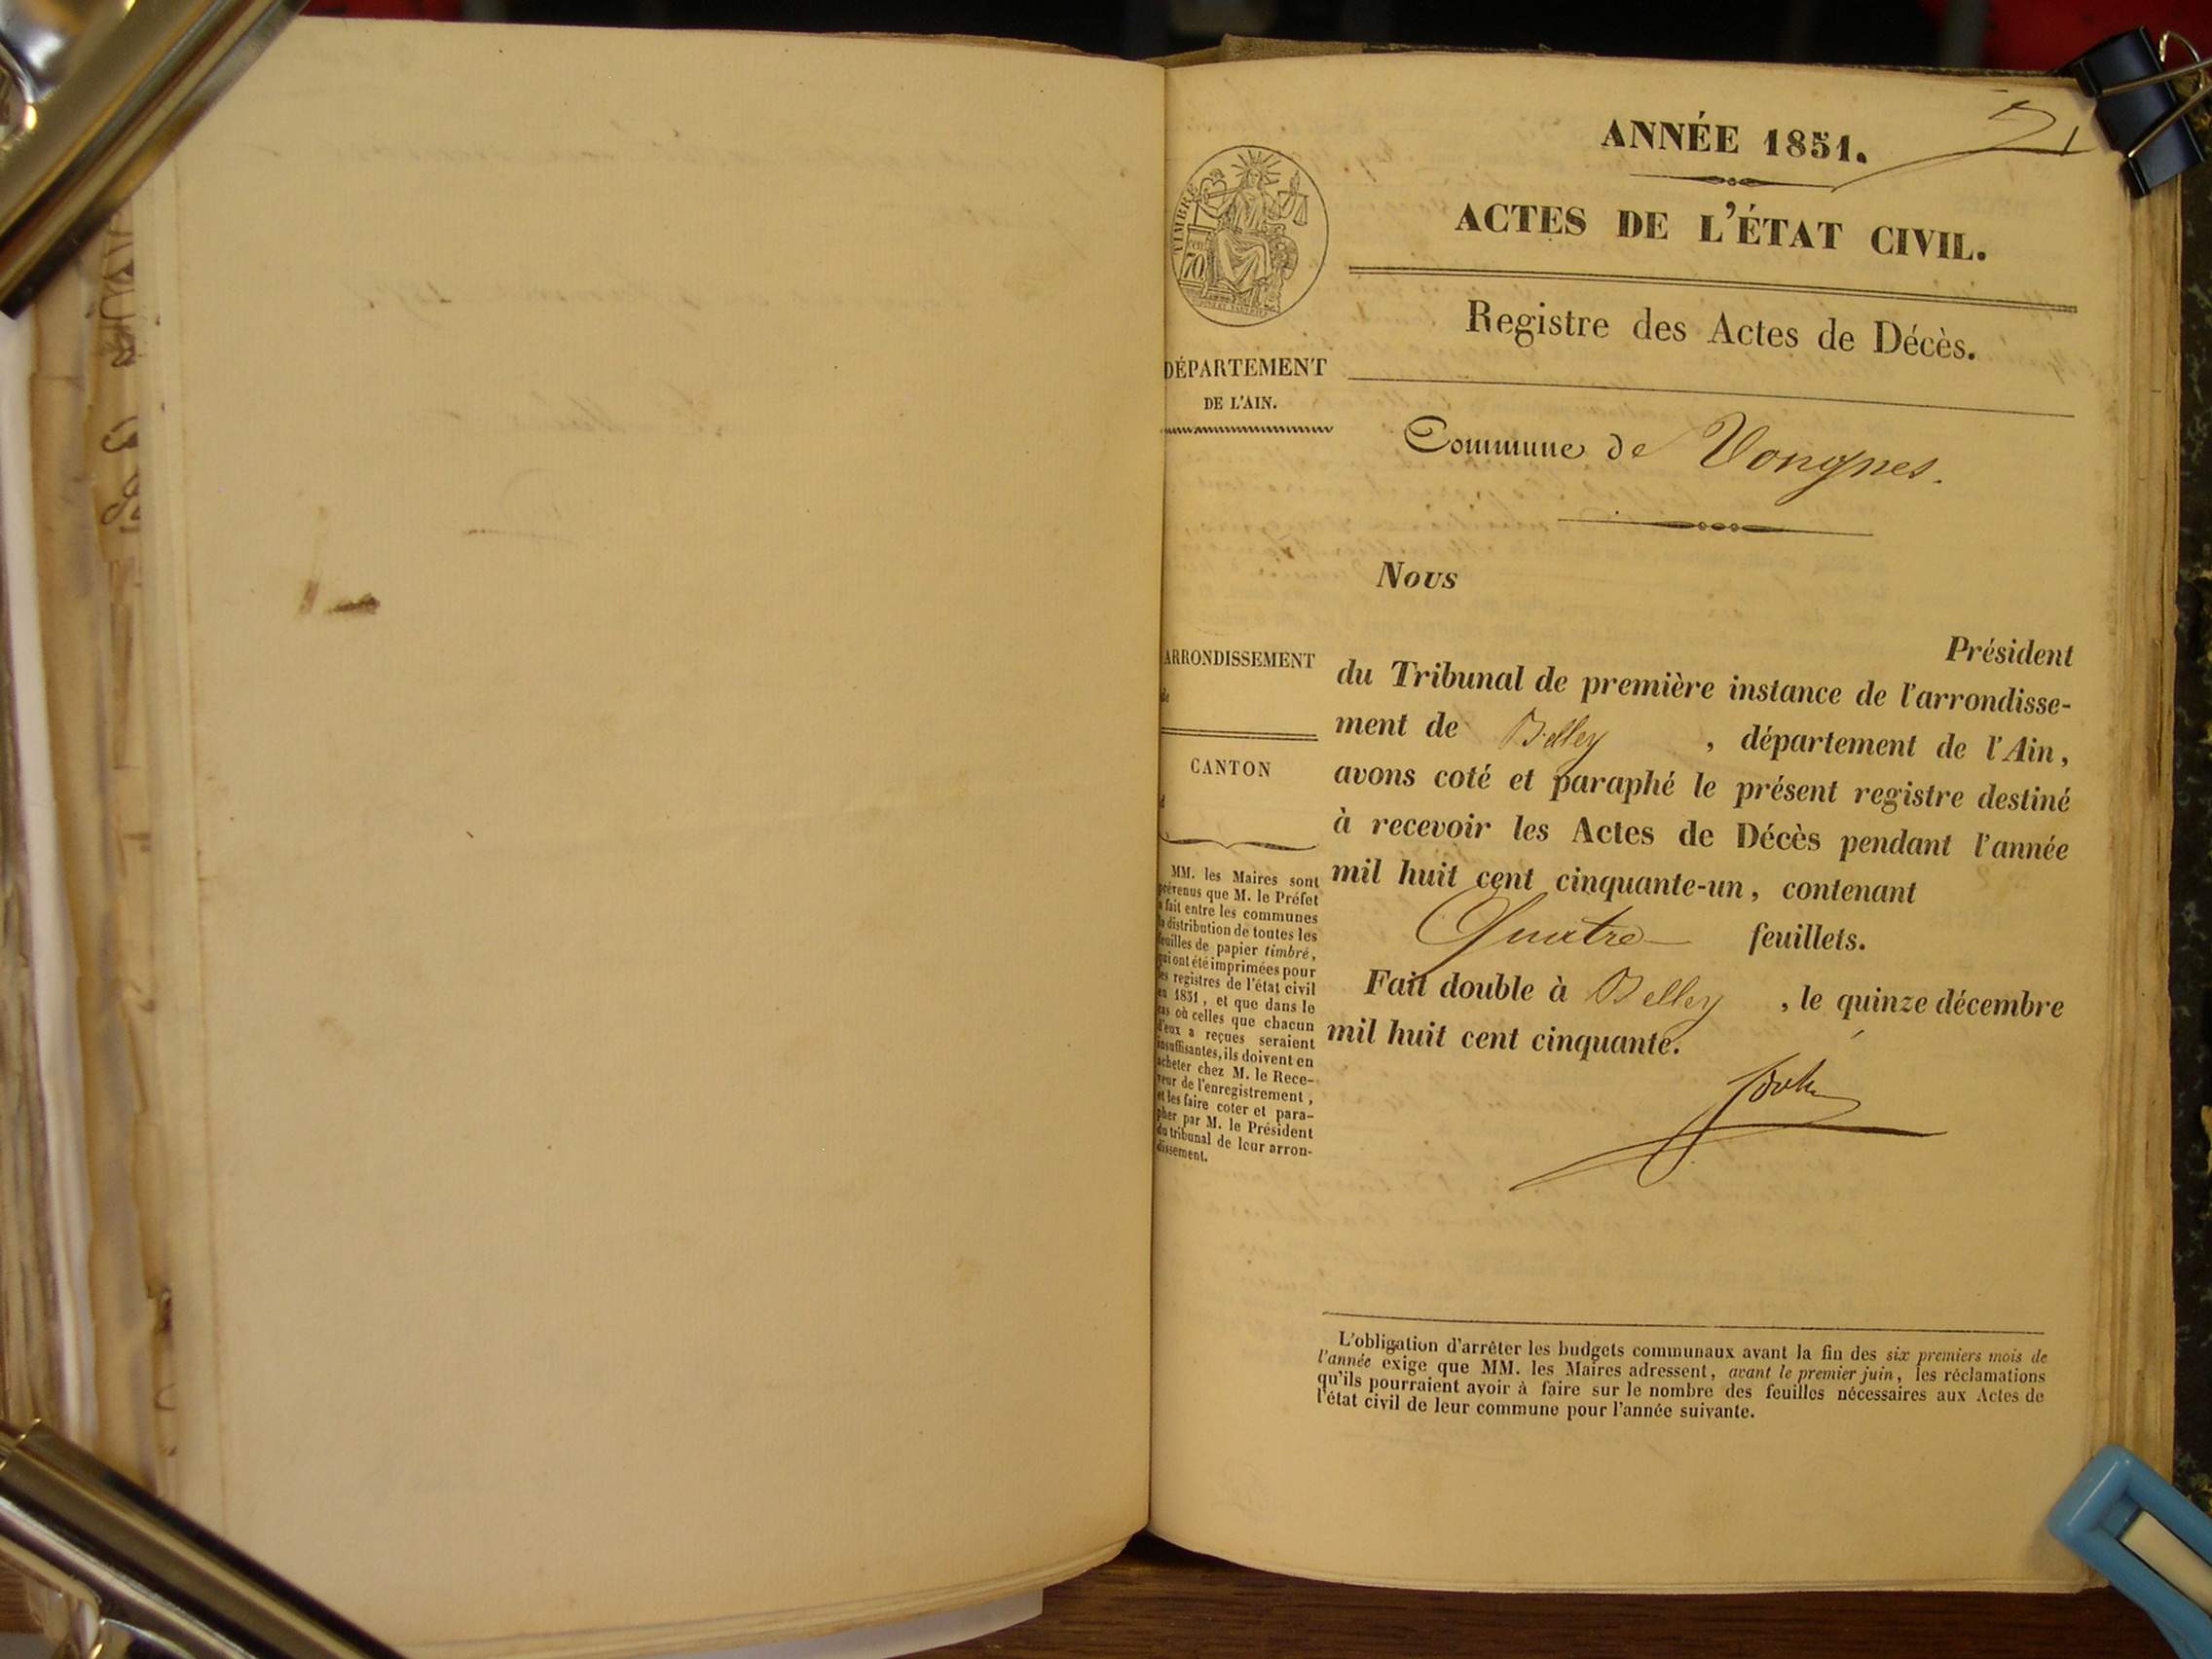 ANNÉE 1851.
ACTES DE L'ÉTAT CIVIL.
TIMBRE
70
Registre des Actes de Décès.
DÉPARTEMENT
DE L'AIN.
Commune de Vongnes.
Nous
Président
du Tribunal de première instance de l'arrondisse-
ment de Belley, département de l'Ain,
avons coté et paraphé le présent registre destiné
à recevoir les Actes de Décès pendant l'année
mil huit cent cinquante-un, contenant
Quatre feuillets.
Fait double à Belley, le quinze décembre
mil huit cent cinquante.
ARRONDISSEMENT
de
CANTON
d
MM. les Maires sont
prévenus que M. le Préfet
a fait entre les communes
la distribution de toutes les
feuilles de papier timbré,
qui ont été imprimées pour
les registres de l'état civil
en 1851, et que dans le
cas où celles que chacun
d'eux a reçues seraient
insuffisantes, ils doivent en
acheter chez M. le Rece-
veur de l'enregistrement,
et les faire coter et para-
pher par M. le Président
du tribunal de leur arron-
dissement.
L'obligation d'arrêter les budgets communaux avant la fin des six premiers mois de
l'année exige que MM. les Maires adressent, avant le premier juin, les réclamations
qu'ils pourraient avoir à faire sur le nombre des feuilles nécessaires aux Actes de
l'état civil de leur commune pour l'année suivante.